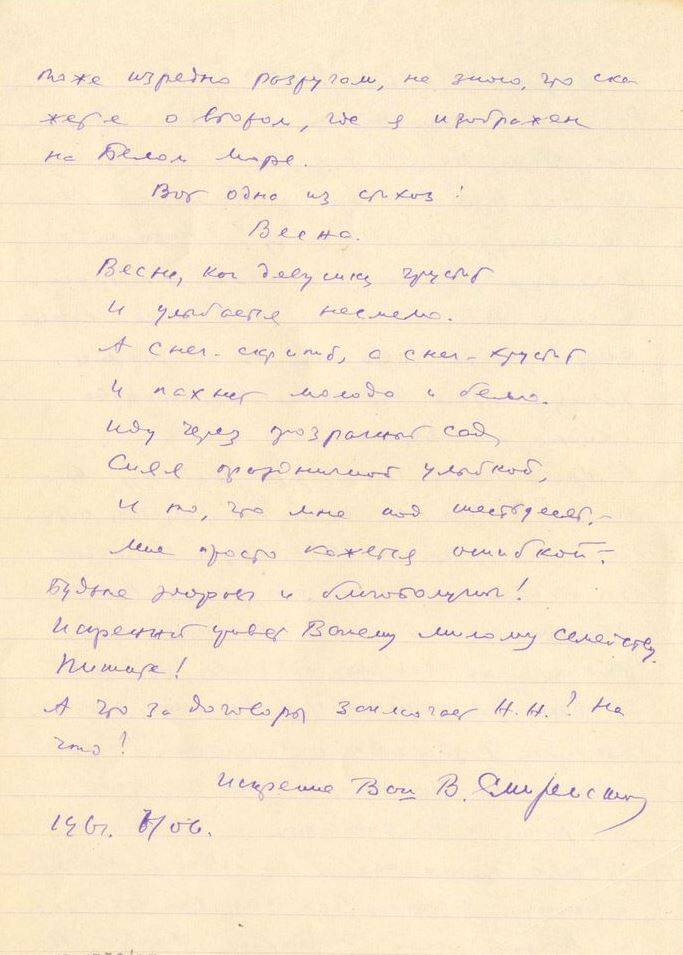 тоже изредно разругам, не знаю, что ска
жете о втором, где я изображен
на Белом море.
Вот одно из стихов:
Весна.
Весна, как девушка, грустит
И улыбается несмело.
А снег - скрипит, а снег - хрустит
И пахнет молодо и бело.
Иду через прозрачный сад,
Сияя праздничной улыбкой,
И то, что мне под шестьдесят, -
Мне просто кажется ошибкой =
Будьте здоровы и благополучны!
Искренний привет Вашему милому семейству.
Пишите!
А что за договоры заключает Н.Н.? На
что?
Искренне Ваш В. Смиренский